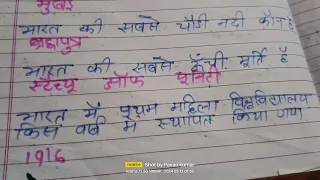 मुंबई
भारत की सबसे चौडी नदी कौन है
ब्रह्मपुत्र
भारत की सबसे ऊँची मूर्ति है
स्टैच्यू ऑफ यूनिटी
भारत में प्रथम महिला विश्वविद्यालय
किस वर्ष में स्थापित किया गया
1916
Shot by Pavan kumar